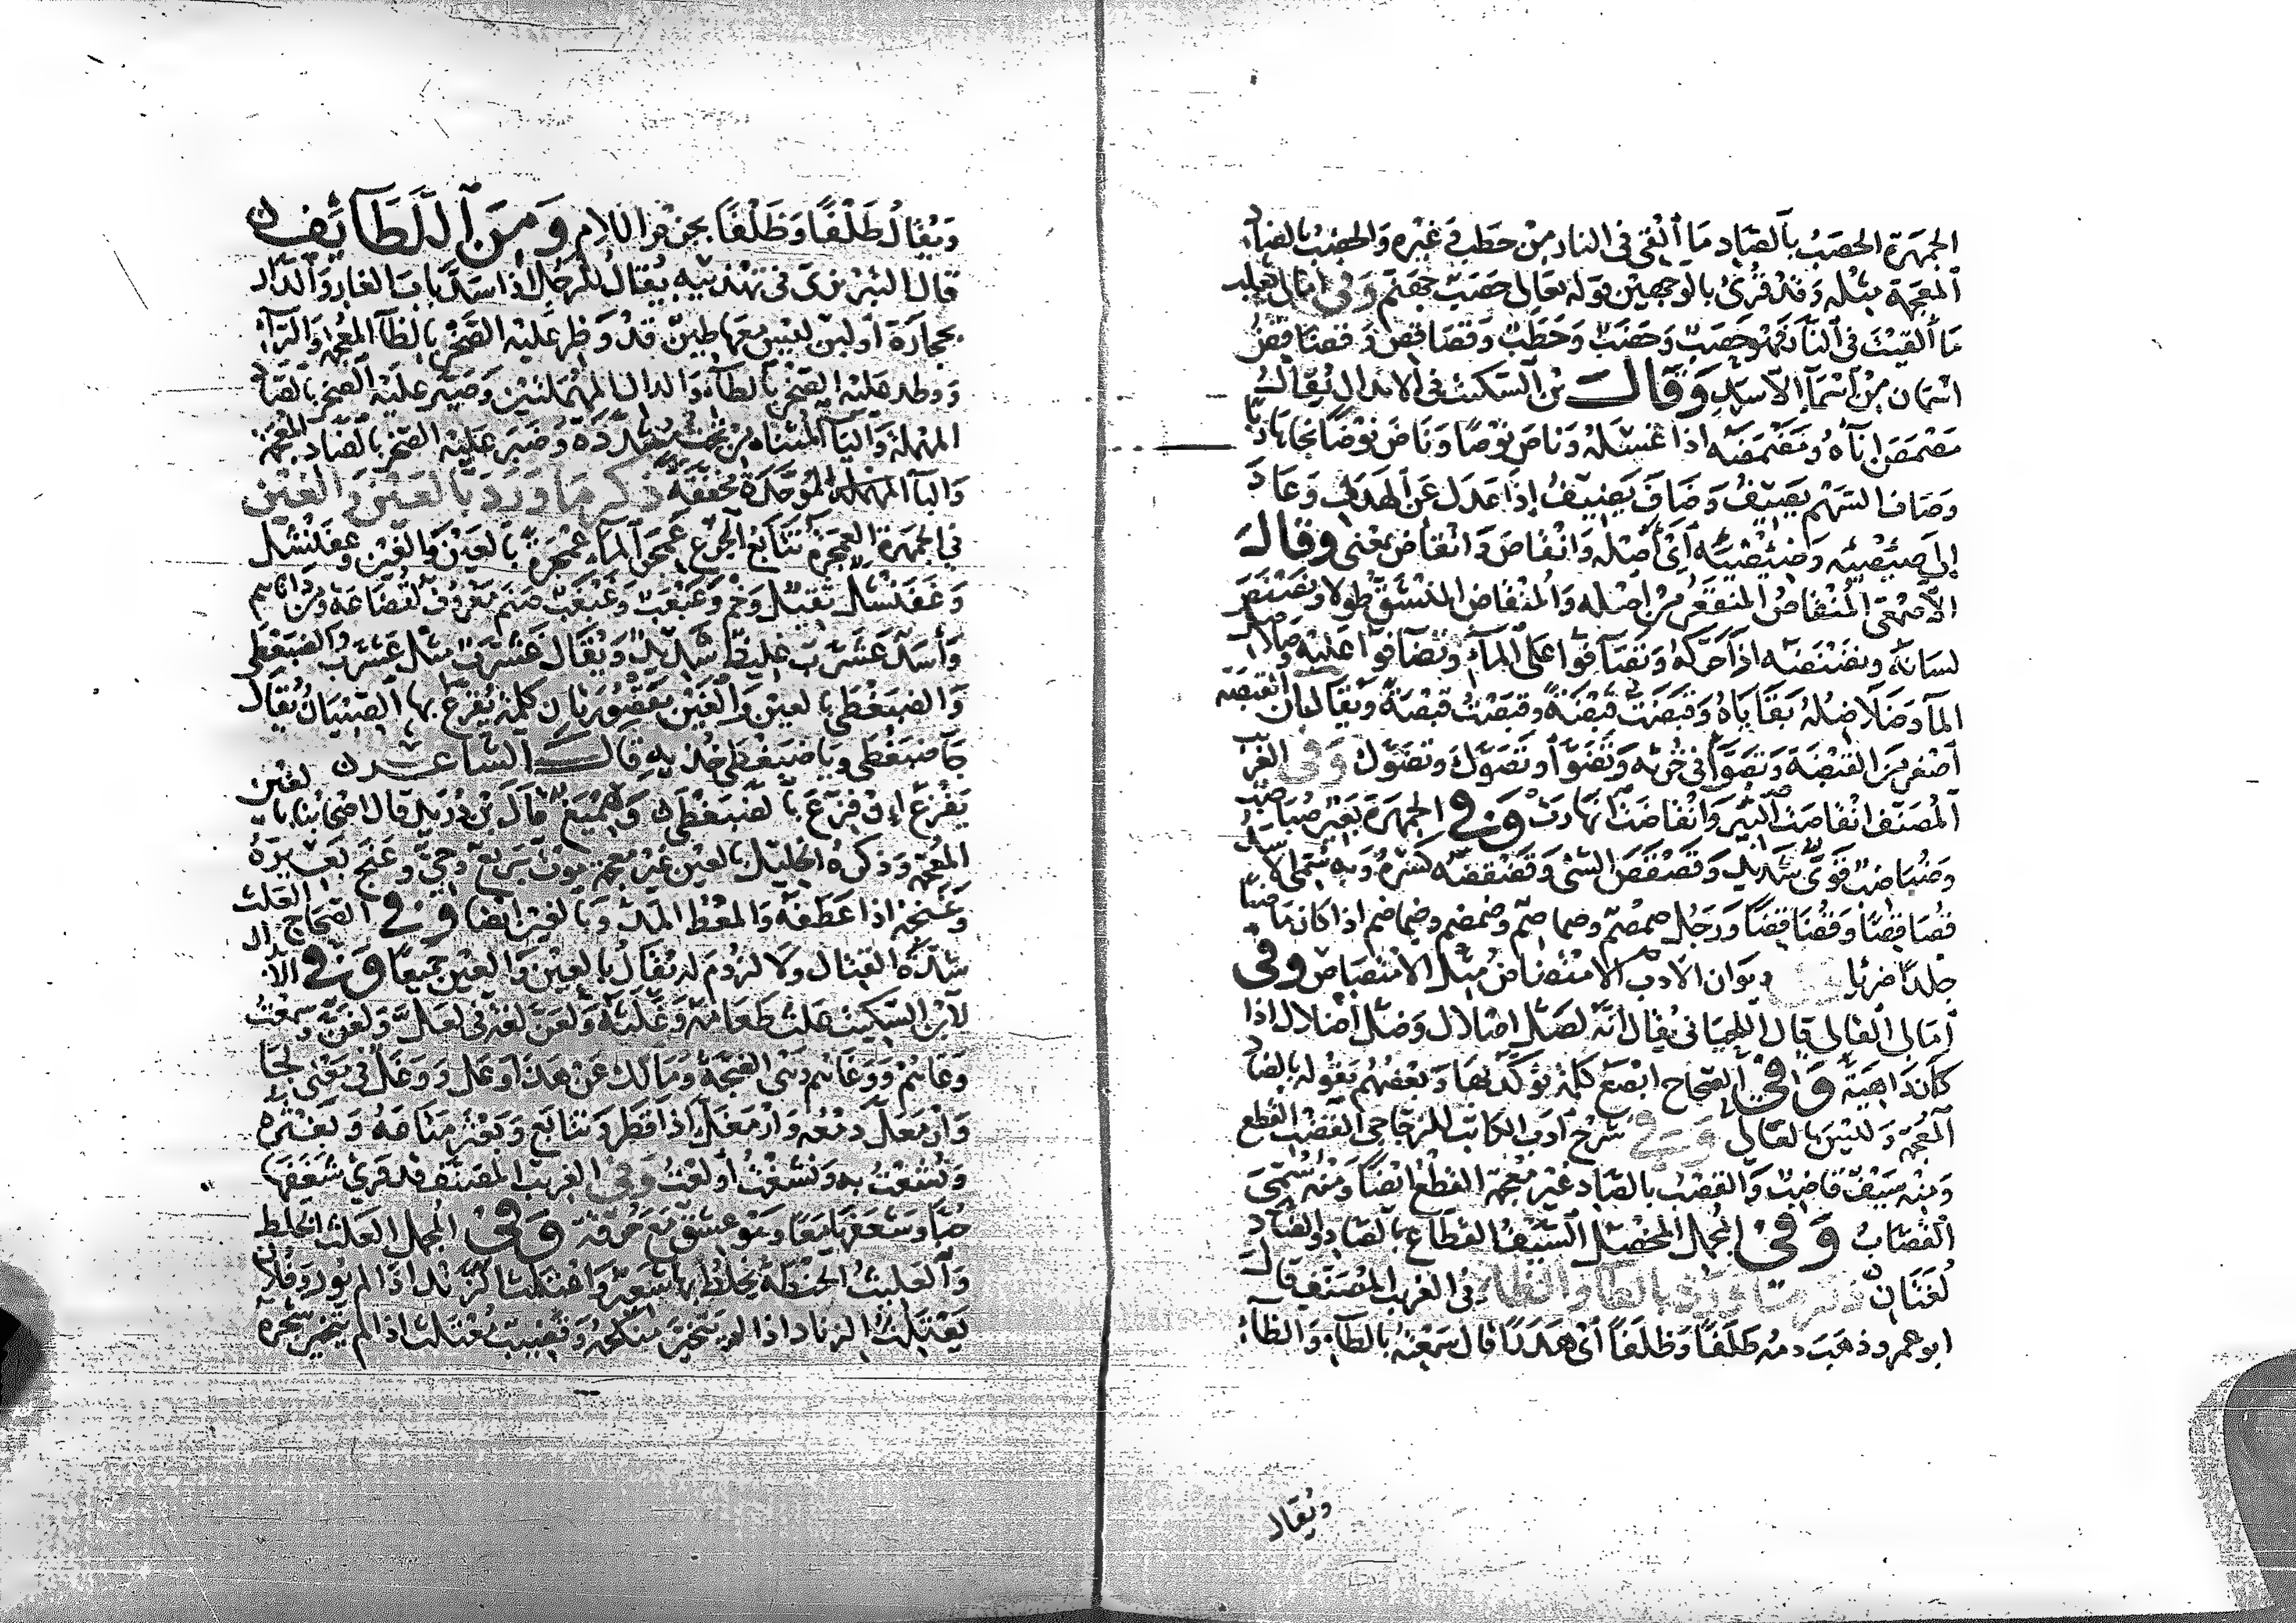 الجمهرة الحصب بالصاد ما القي في النار من حطب في غيره والحضب بالضاد
المعجمة مثله وقد قرئ بالوجهين قوله تعالى حصب جهنم وفي امالي ثعلب
ما القيت في النار فهو حصب وحضب وحطب وقصاقص وقضاقض
اسمان من اسما الاسد وقال بن السكيت في الابدال يقال
مصمص اناه ومضمضه اذا غسله وناص نوصا وناض نوضا نجا هاربا
وصاف السهم يصيف وضاف يضيف اذا عدل عن الهدف وعاد
الى صئصئه وضئضئه اي اصله وانقاص وانقاض بمعنى وقال
الاصمعي المنقاص المنقعر من اصله والمنقاض المنشق طولا ونصنص
لسانه ونضنضه اذا حركه وتصافوا على الماء وتضافوا عليه وصلاصل
الما وضلاضله بقاياه وقبصت قبصة وقبضت قبضة ويقال ان القبصة
اصغر من القبضة وتصوا في خرئه وتضوا وتصوك وتضوك وفي الغريب
المصنف انقاصت البير وانقاضت انهارت وفي الجمهرة بعير صباصب
وضباضب قوي شديد وقصقص الشي وقضقضه كسره وبه سمي الاسد
قصاقصا وقضاقضا ورجل صمصم وصماصم وضمضم وضماضم اذا كان ماضيا
جلدا ضربا ديوان الادب الامتضاض مثل الامتصاص وفي
امالي القالي قال اللحياني يقال انه لصل اصلال وضل اضلال اذا
كان داهية وفي الصحاح ابصع كلمة يوكد بها وبعضهم يقوله بالضاد
المعجمة وليس بالعالي وفي شرح ادب الكاتب للزجاجي القضب القطع
ومنه سيف قاضب والقصب بالصاد غير معجمة القطع ايضا ومنه سمي
القصاب وفي المجمل المخصل السيف القطاع بالصاد والضاد
لغتان ذكر ما ورد بالطا والظا في الغريب المصنف قال
ابو عمرو ذهب دمه طلفا وظلفا اي هدرا قال سمعته بالطاء والظاء
ويقال
ويقال طلفا وظلفا بجزم اللام ومن اللطائف
قال التبريزي في تهذيبه يقال للرجل اذا سد باب الغار والدار
بحجارة او لبن ليس معها طين قد وظر عليه الصخر بالظا المعجمة والراء
ووطد عليه الصخر بالطاء والدال المهملتين وصير عليه الصخر بالصاد
المهملة واليا المثناه من تحت مشددة وضبر عليه الصخر بالضاد المعجمة
والبا المهملة الموحدة مخففه ذكر ما ورد بالعين والغين
في الجمهرة العمجرة تتابع الجرع عمجر الما عمجرة بالعين والغين وعفنشل
وغفنشل ثقيل وخم وعبعب وغبغب صنم معروف لقضاعة ومن داناهم
واسد عشرب غليظ شديد ويقال غشرب مثل عشرب والضبغطى
والضبعطى بالعين والغين مقصوران كلمة يفزع بها الصبيان يقال
جا ضبغطى ويا ضبغطى خذيه قال الشاعر
يفزع ان فزع بالضبغطى وهميغ قال بن دريد قال اصحابنا بالغين
المعجمة وذكره الخليل بالعين غير معجمة موت سريع وحي وعنج بعيره
وغنجه اذا عطفه والمعط المد وبالغين ايضا وفي الصحاح العلث
شدة القتال واللزوم له يقال بالعين والغين جميعا وفي الابدال
لابن السكيت علث طعامه وغلثه ولعن لغة في لعل ولغن وسمعت
وعاهم ووغاهم وهي الضجة ومالك عن هذا وعل ووغل في معنى لجا
وارمعل دمعه وارمغل اذا قطر وتتابع وبعثر متاعه وبغثره
ونشعت به ونشغت اولعت وفي الغريب المصنف قد قرئ شغفها
حبا وشعفها معا وهو عشق مع حرقة وفي المجمل العلث الخلط
والعليث الحنطة يخلط بها شعير واعتلث الزند اذا لم يور وفلان
يعتلث الزناد اذا لم يتخير منكحه وقضيب معتلث اذا لم يتخير شجره